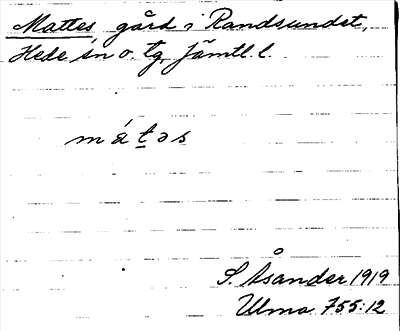 Mattes gård i Randsundet,
Hede sn o. tg, Jämtl. l.
mát̲əs
S. Åsander 1919
Ulma 755:12